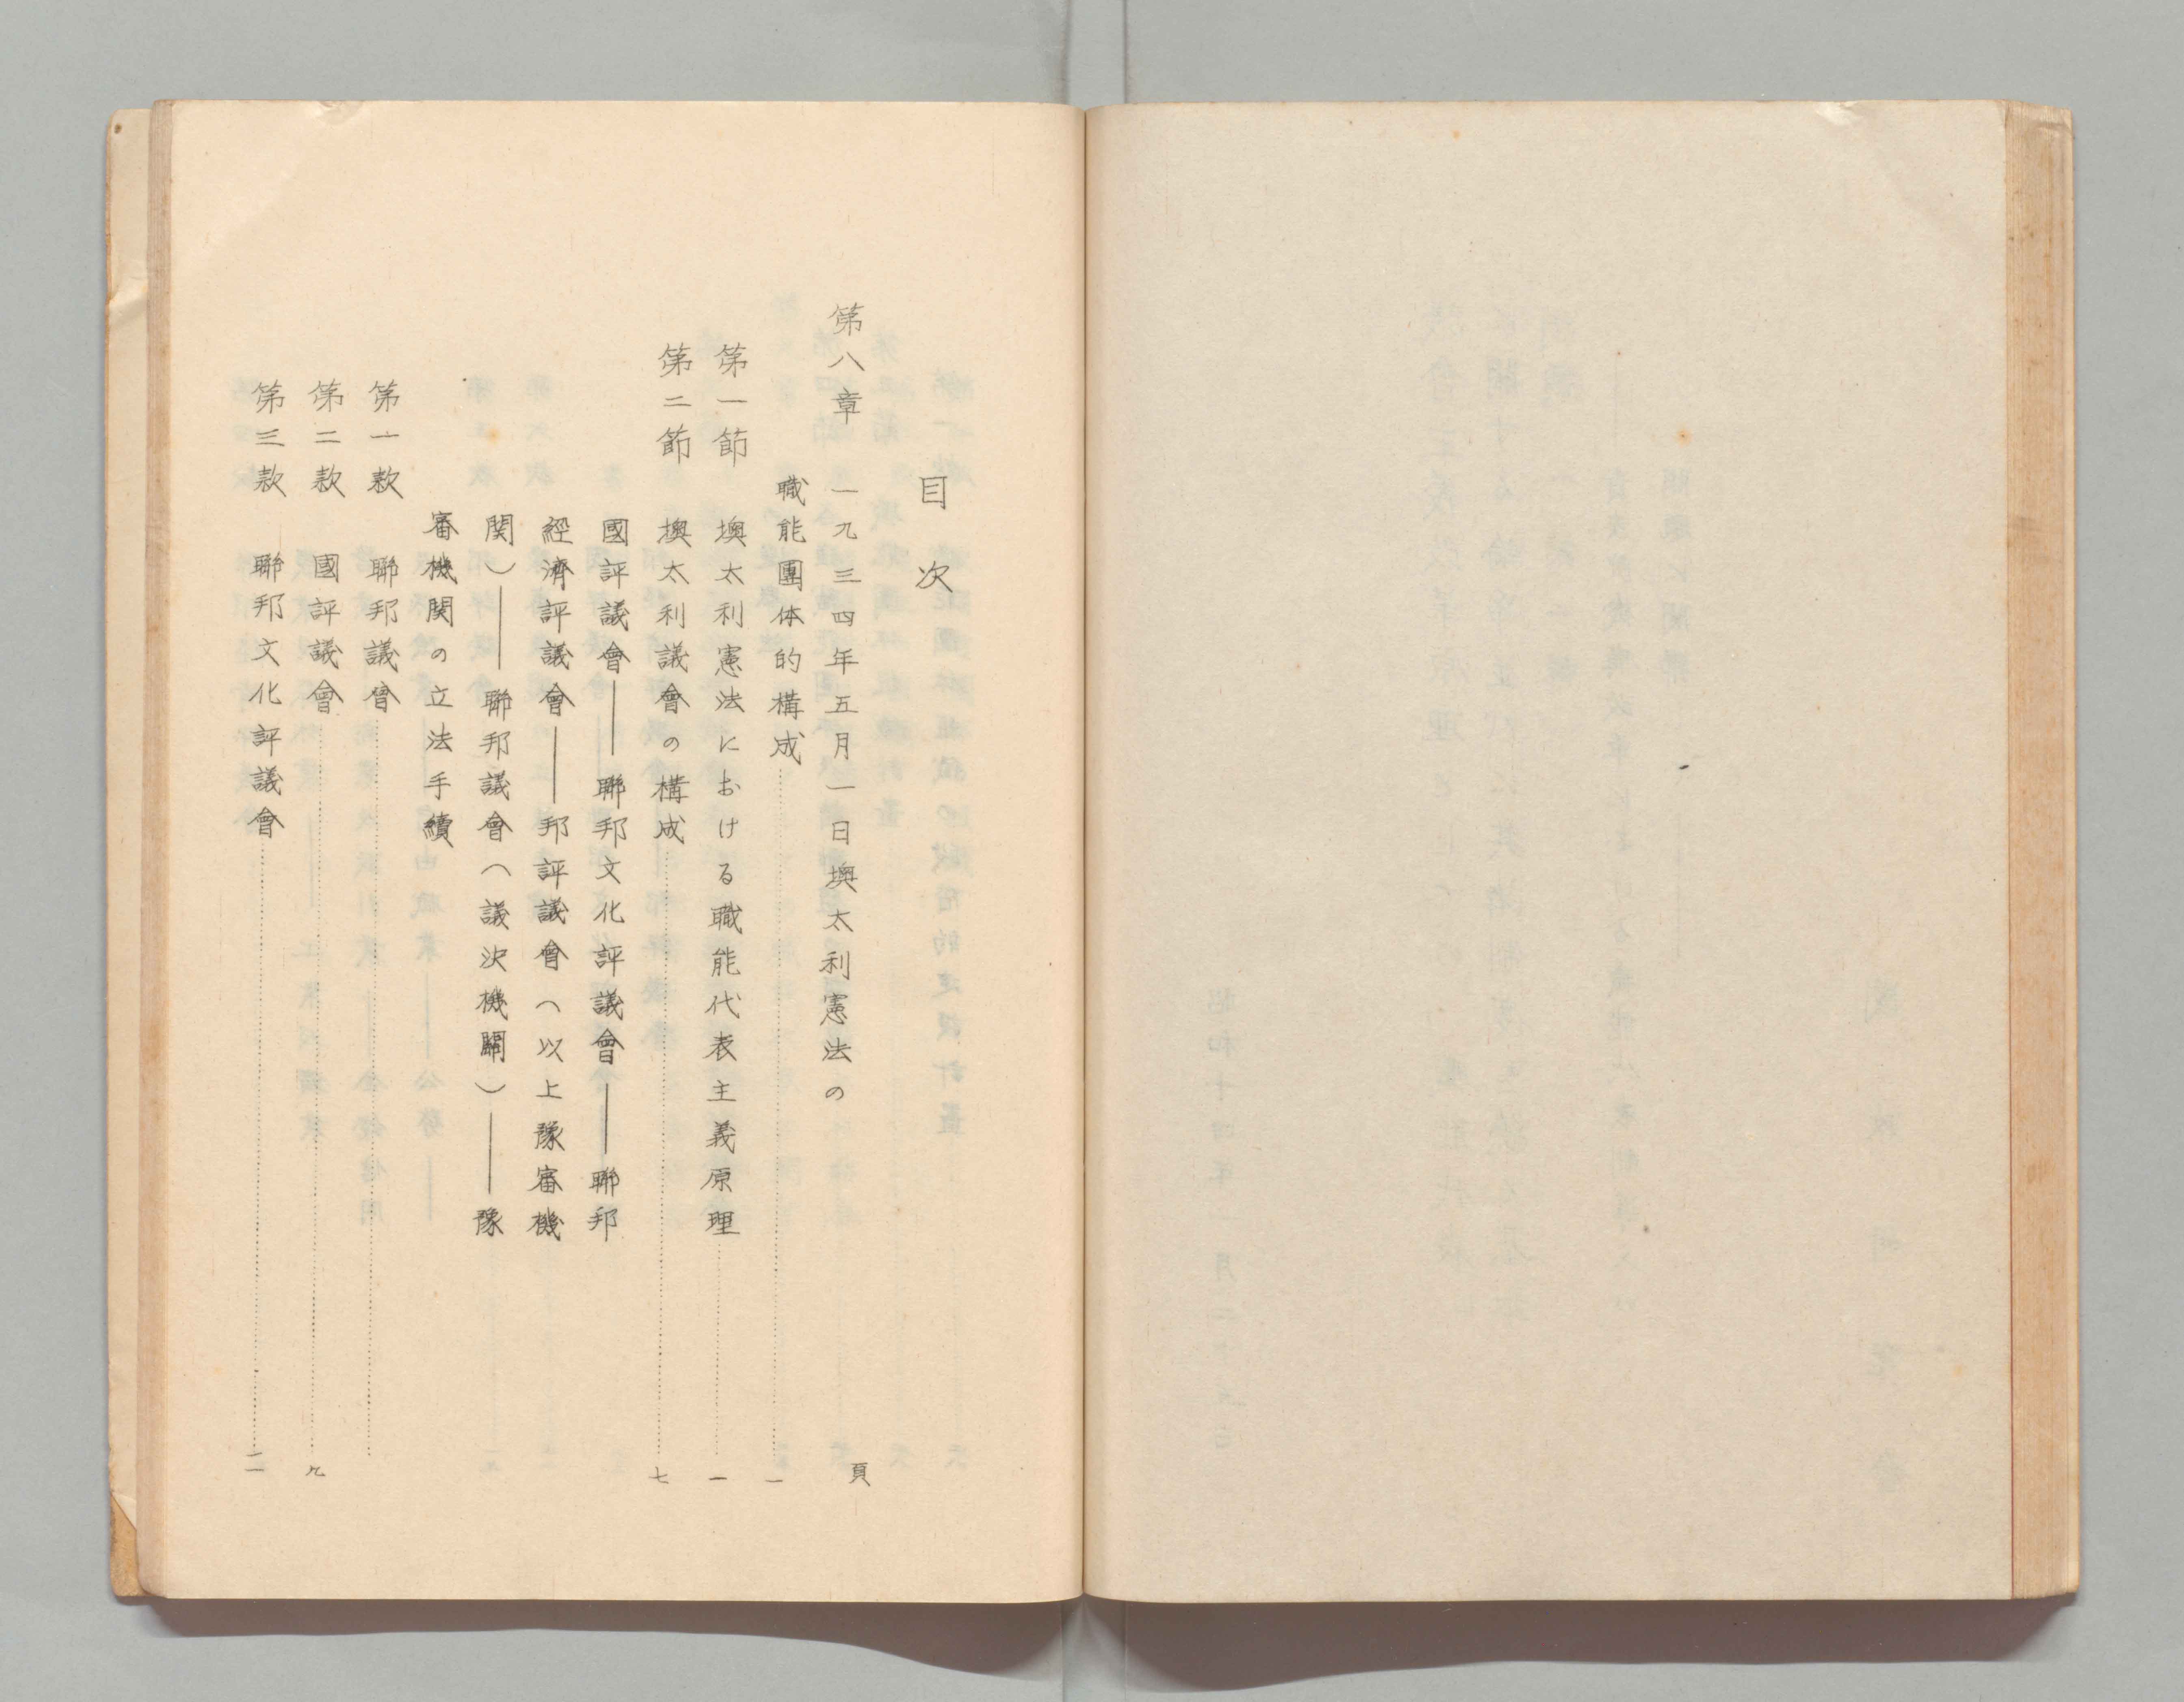 目次
頁
第八章 一九三四年五月一日墺太利憲法の
職能團体的構成……一
第一節 墺太利憲法における職能代表主義原理……一
第二節 墺太利議會の構成……七
國評議會――聯邦文化評議會――聯邦
經濟評議會――邦評議會（以上豫審機
関）――聯邦議會（議決機關）――豫
審機関の立法手續
第一款 聯邦議會……
第二款 國評議會……九
第三款 聯邦文化評議會……二一